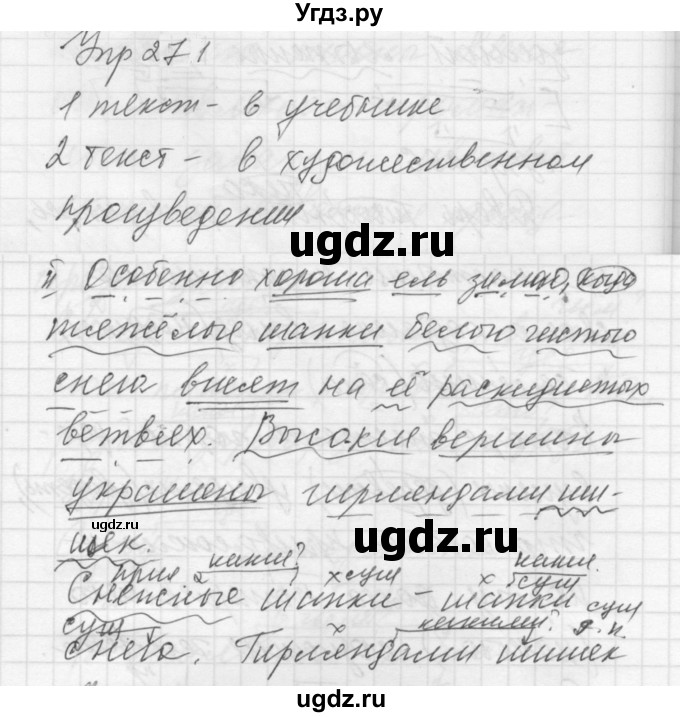 Угдз.ру
Упр 271
1 текст - в учебнике
2 текст - в художественном
произведении
ugdz.ru
Особенно хороша ель зимой, когда
тяжёлые шапки белого чистого
снега висят на её раскидистых
ветвях. Высокие вершины
украшены гирляндами ши-
ugdz.ru
ugdz.ru
шек.
прил какие? 2 1 х сущ х сущ какие.
Снежные шапки - шапки сущ
сущ какими? р.п.
снега. Гирляндами шишек
ugdz.ru